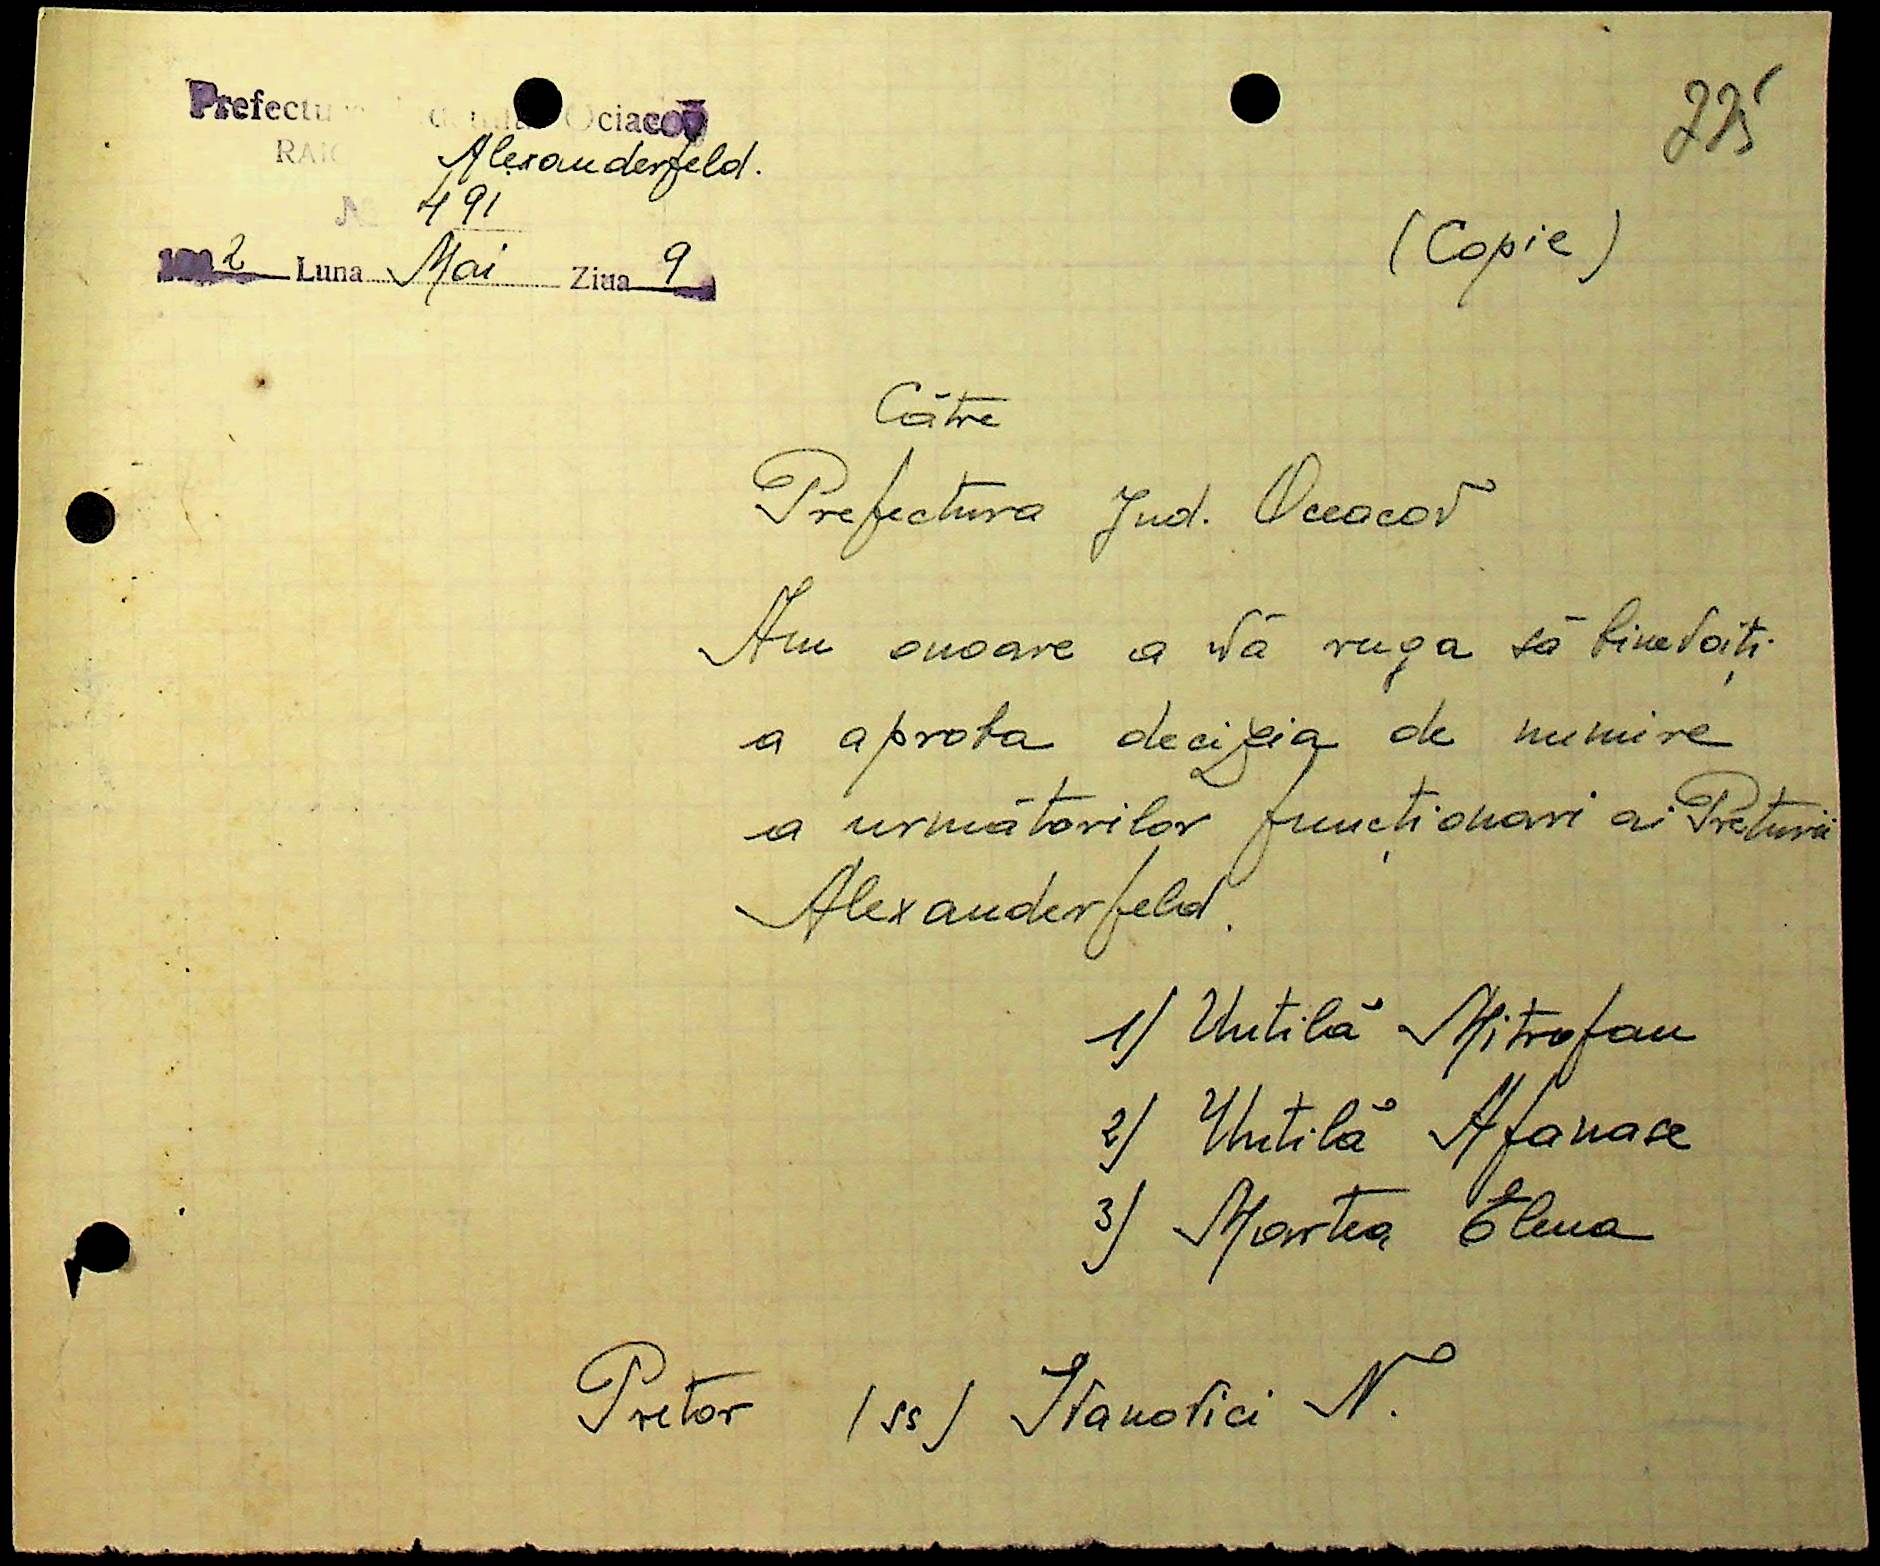 225
Prefectu Ociacov
RAIO Alexanderfeld.
No 491
1942 Luna Mai Ziua 9
(Copie)
Către
Prefectura Jud. Oceacov
Am onoare a vă ruga să binevoiți
a aproba decizia de numire
a următorilor funcționari ai Preturii
Alexanderfeld.
1) Untilă Mitrofan
2) Untilă Afanase
3) Martea Elena
Pretor (ss) Ivanovici N.